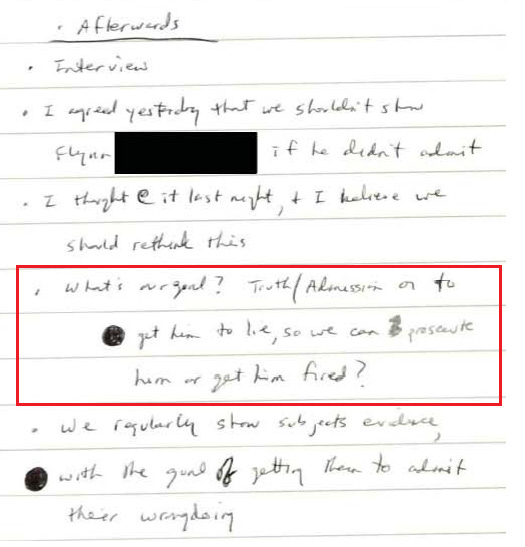 • Afterwards
• Interview
• I agreed yesterday that we shouldn't show
Flynn if he didn't admit
• I thought @ it last night, + I believe we
should rethink this
• What's our goal? Truth/Admission or to
get him to lie, so we can prosecute
him or get him fired?
• We regularly show subjects evidence,
with the goal of getting them to admit
their wrongdoing